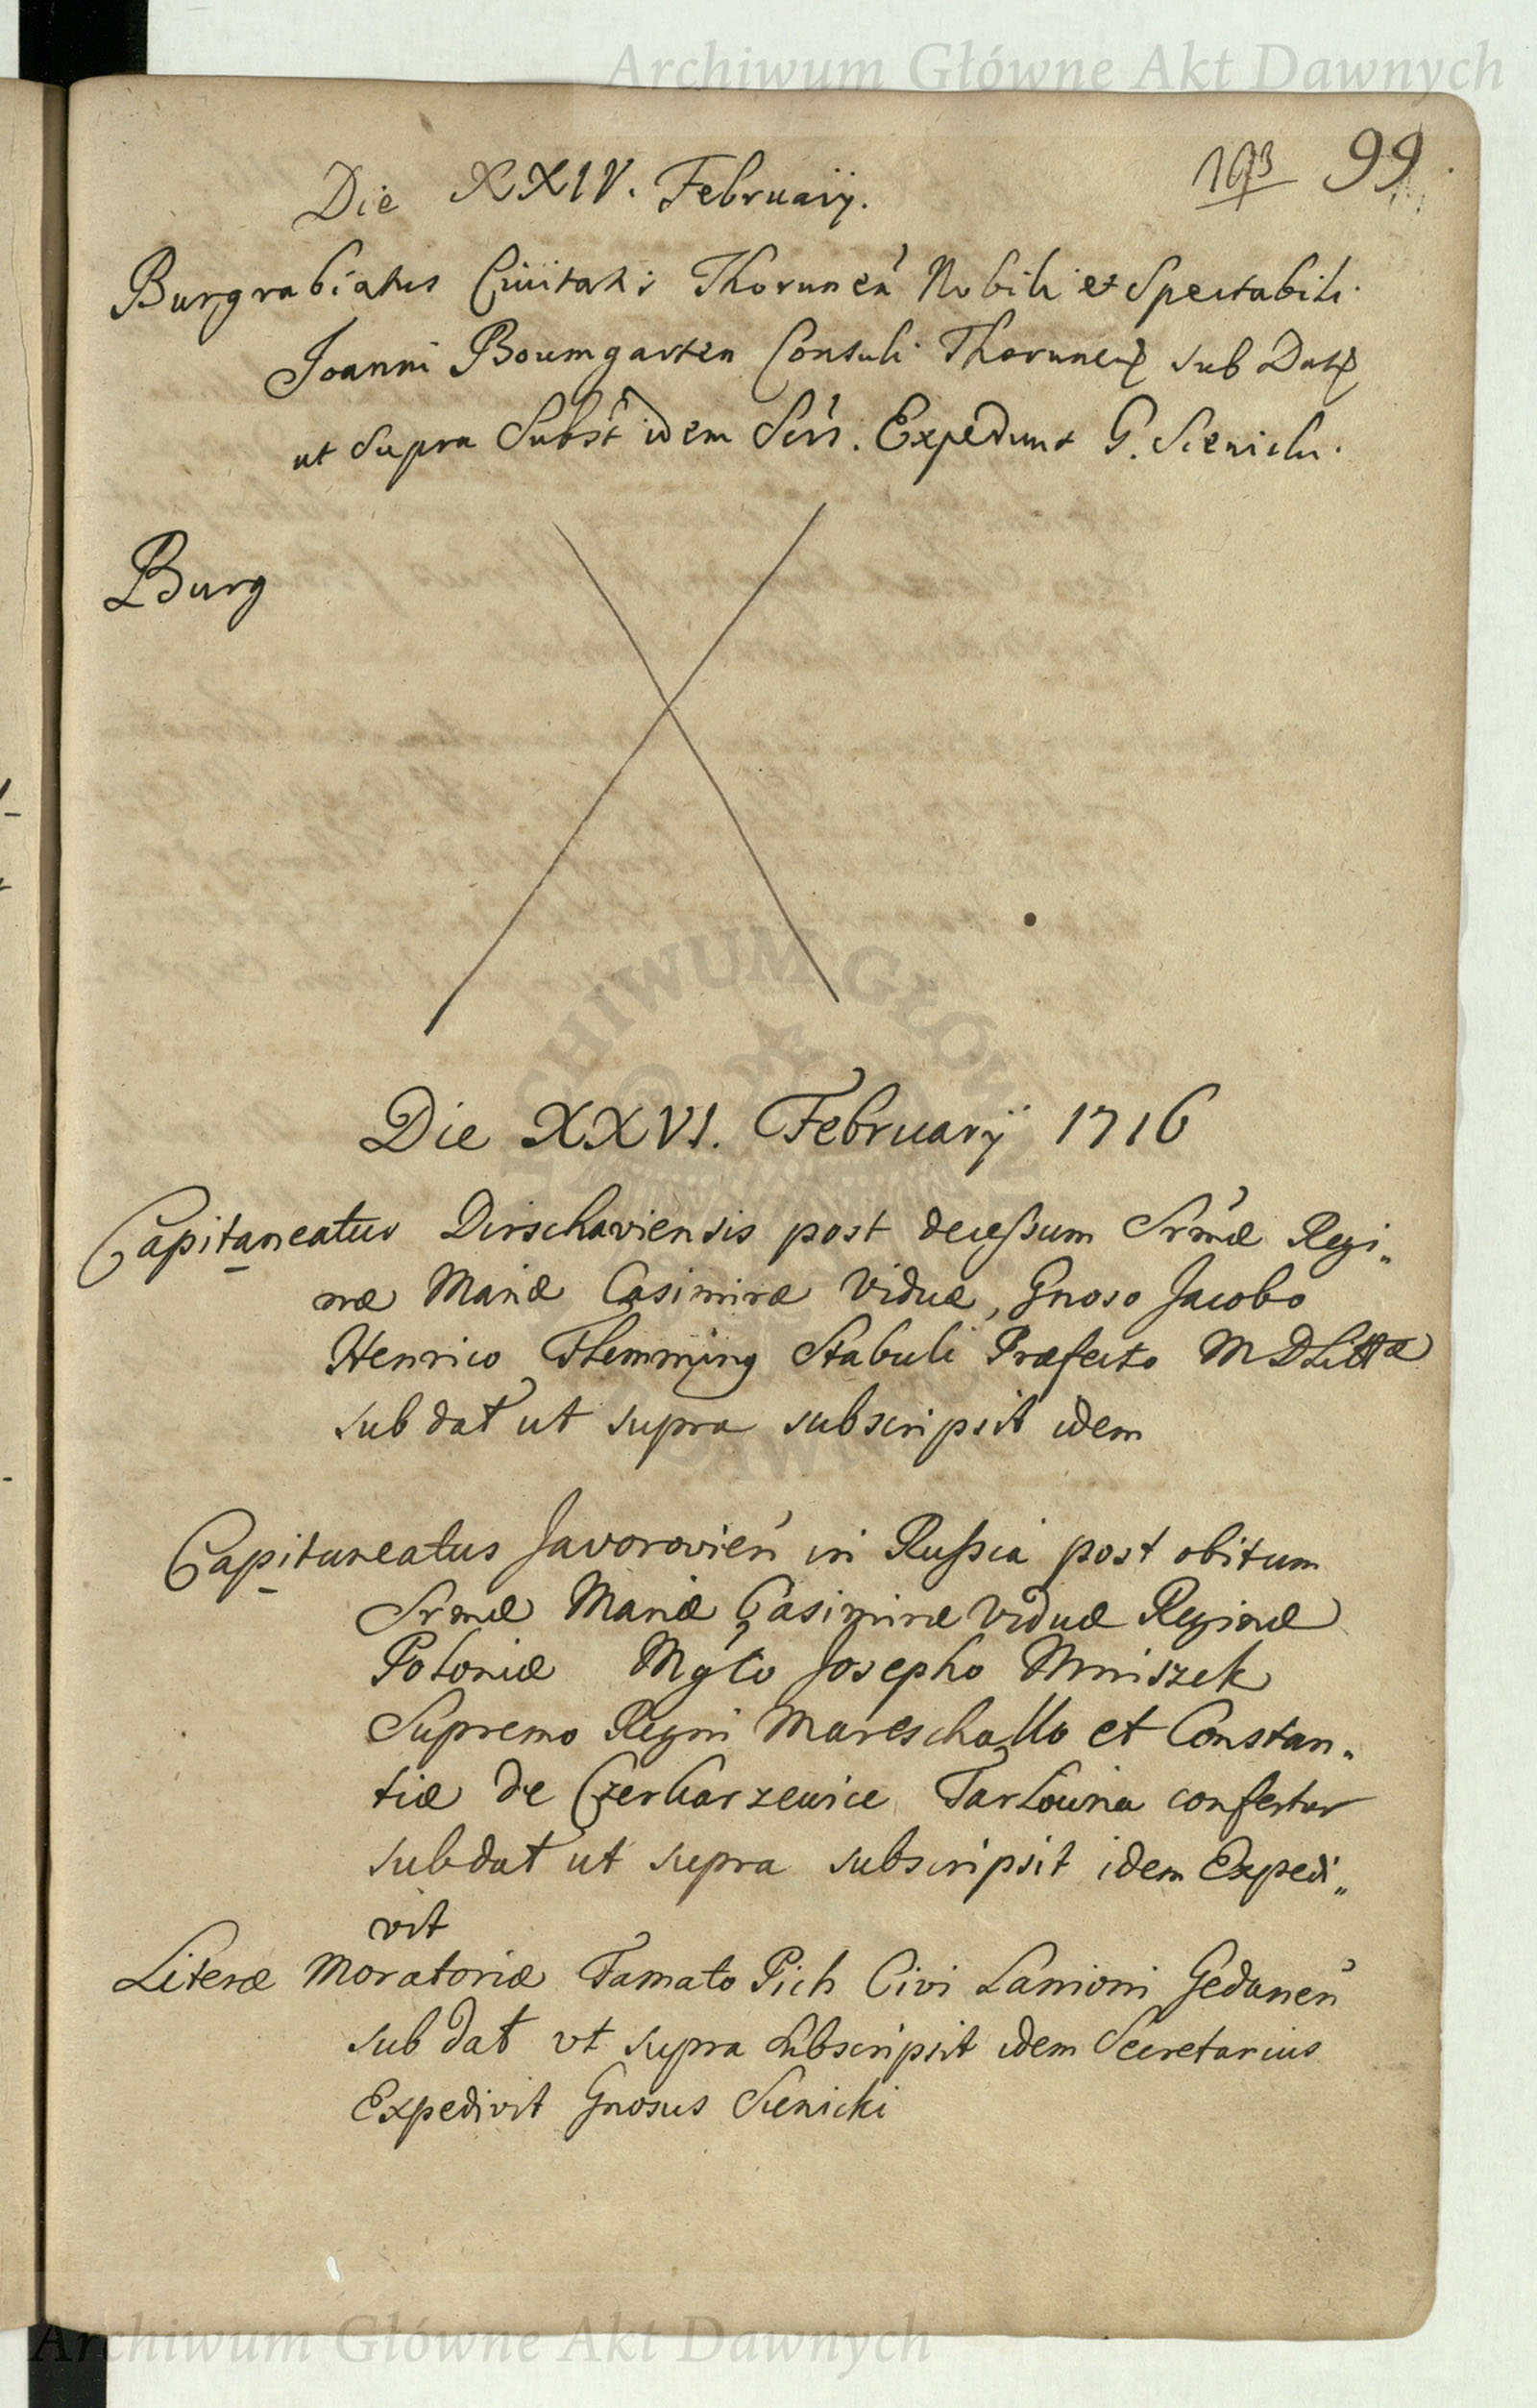 Archiwum Główne Akt Dawnych
103 99
Die XXIV. Februarij.
Burgrabiatus Civitatis Thorunen Nobili et Spectabili
Joanni Boumgarten Consuli Thorunen sub Data
ut supra Subst idem Scrs. Expedunt G. Sienicki.
Burg
Die XXVI. Februarÿ 1716
Capitaneatus Dirschaviensis post decessum Srmæ Regi„
næ Mariæ Casimiræ Viduæ, Gnoso Jacobo
Henrico Flemming Stabuli Præfecto M D Littæ
sub dat ut supra subscripsit idem
Capitaneatus Javorovien in Russia post obitum
Srmæ Mariæ Casimiræ Viduæ Reginæ
Poloniæ Mgfco Josepho Mniszek
Supremo Regni Mareschallo et Constan„
tiæ de Czekarzewice Tarłowna confertur
sub dat ut supra subscripsit idem Expedi„
vit
Literæ Moratoriæ Famato Pich Civi Lanioni Gedanen
sub dat vt supra subscripsit idem Secretarius
Expedivit Gnosus Sienicki
Archiwum Główne Akt Dawnych